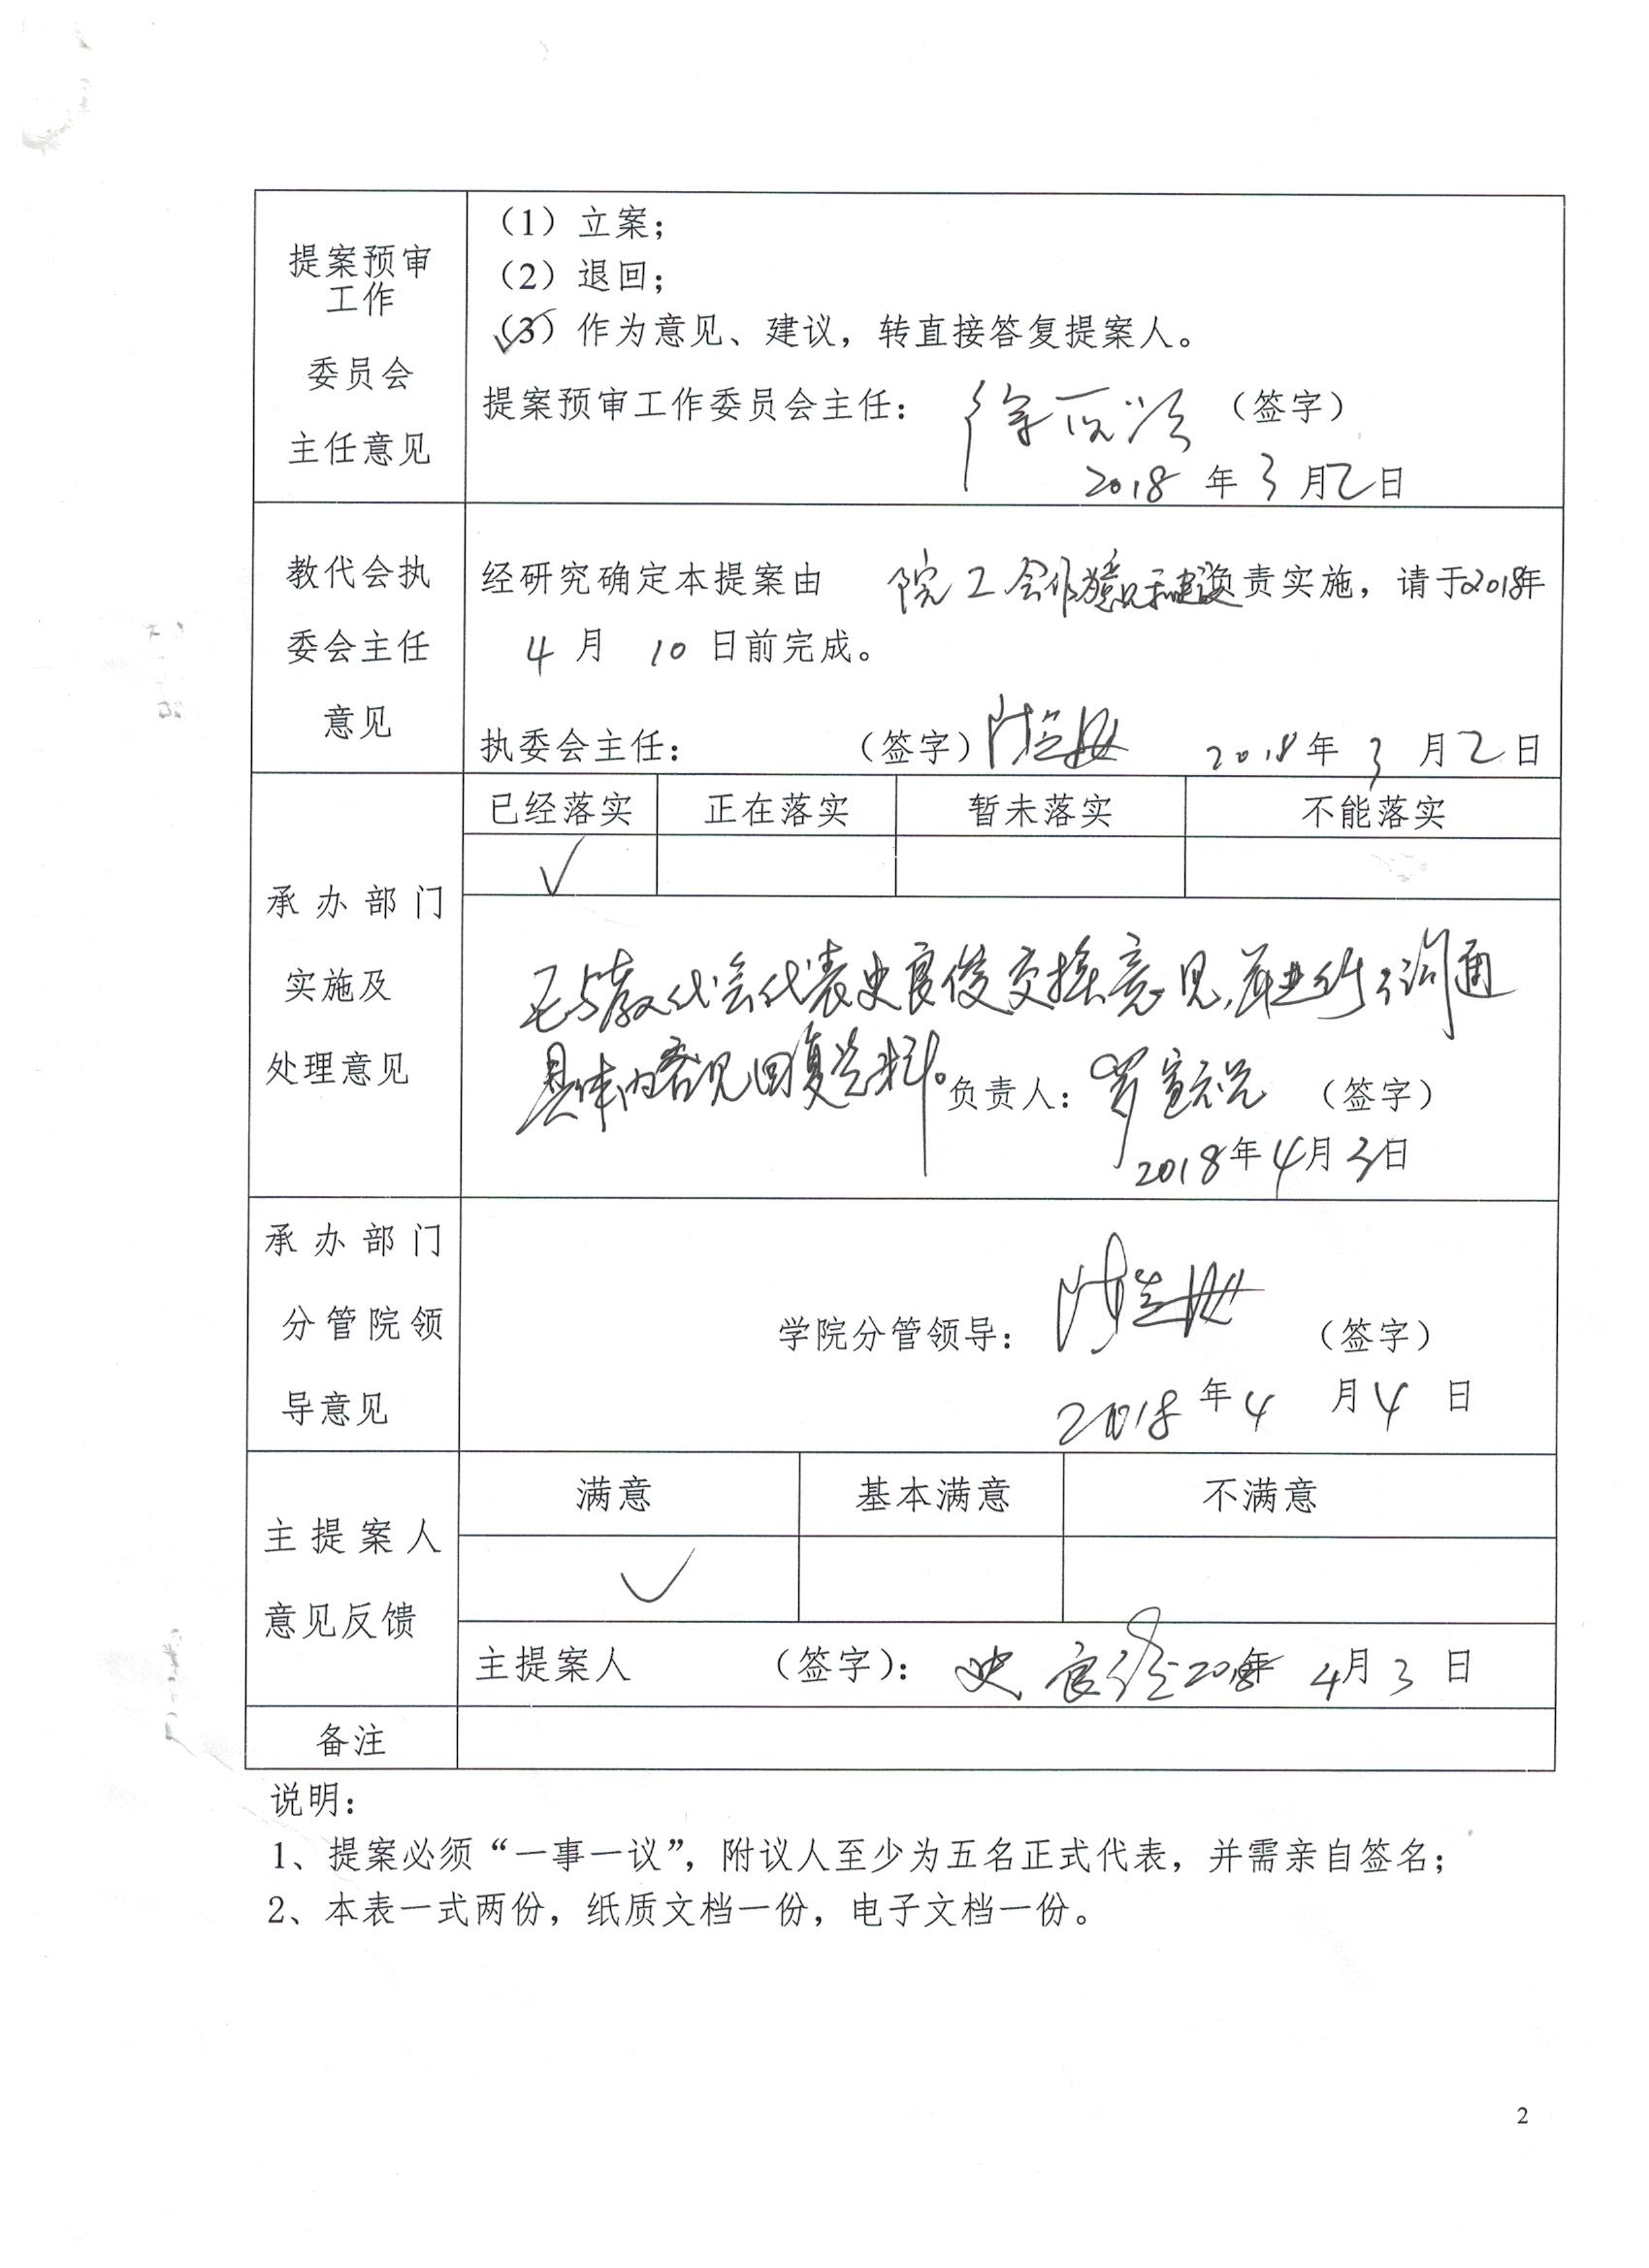 提案预审
工作
委员会
主任意见
（1）立案；
（2）退回；
（3）作为意见、建议，转直接答复提案人。
提案预审工作委员会主任： （签字）
2018 年 3 月 2 日
教代会执
委会主任
意见
经研究确定本提案由 院工会作为意见和建议负责实施，请于2018年
4 月 10 日前完成。
执委会主任： （签字） 2018年 3 月 2 日
承办部门
实施及
处理意见
已经落实 正在落实 暂未落实 不能落实
√
已与教代会代表史良俊交换意见，并进行了沟通
具体内容见回复资料。负责人： （签字）
2018年4月3日
承办部门
分管院领
导意见
学院分管领导： （签字）
2018 年 4 月 4 日
主提案人
意见反馈
满意 基本满意 不满意
√
主提案人 （签字）： 史良俊 2018年 4月 3 日
备注
说明：
1、提案必须“一事一议”，附议人至少为五名正式代表，并需亲自签名；
2、本表一式两份，纸质文档一份，电子文档一份。
2